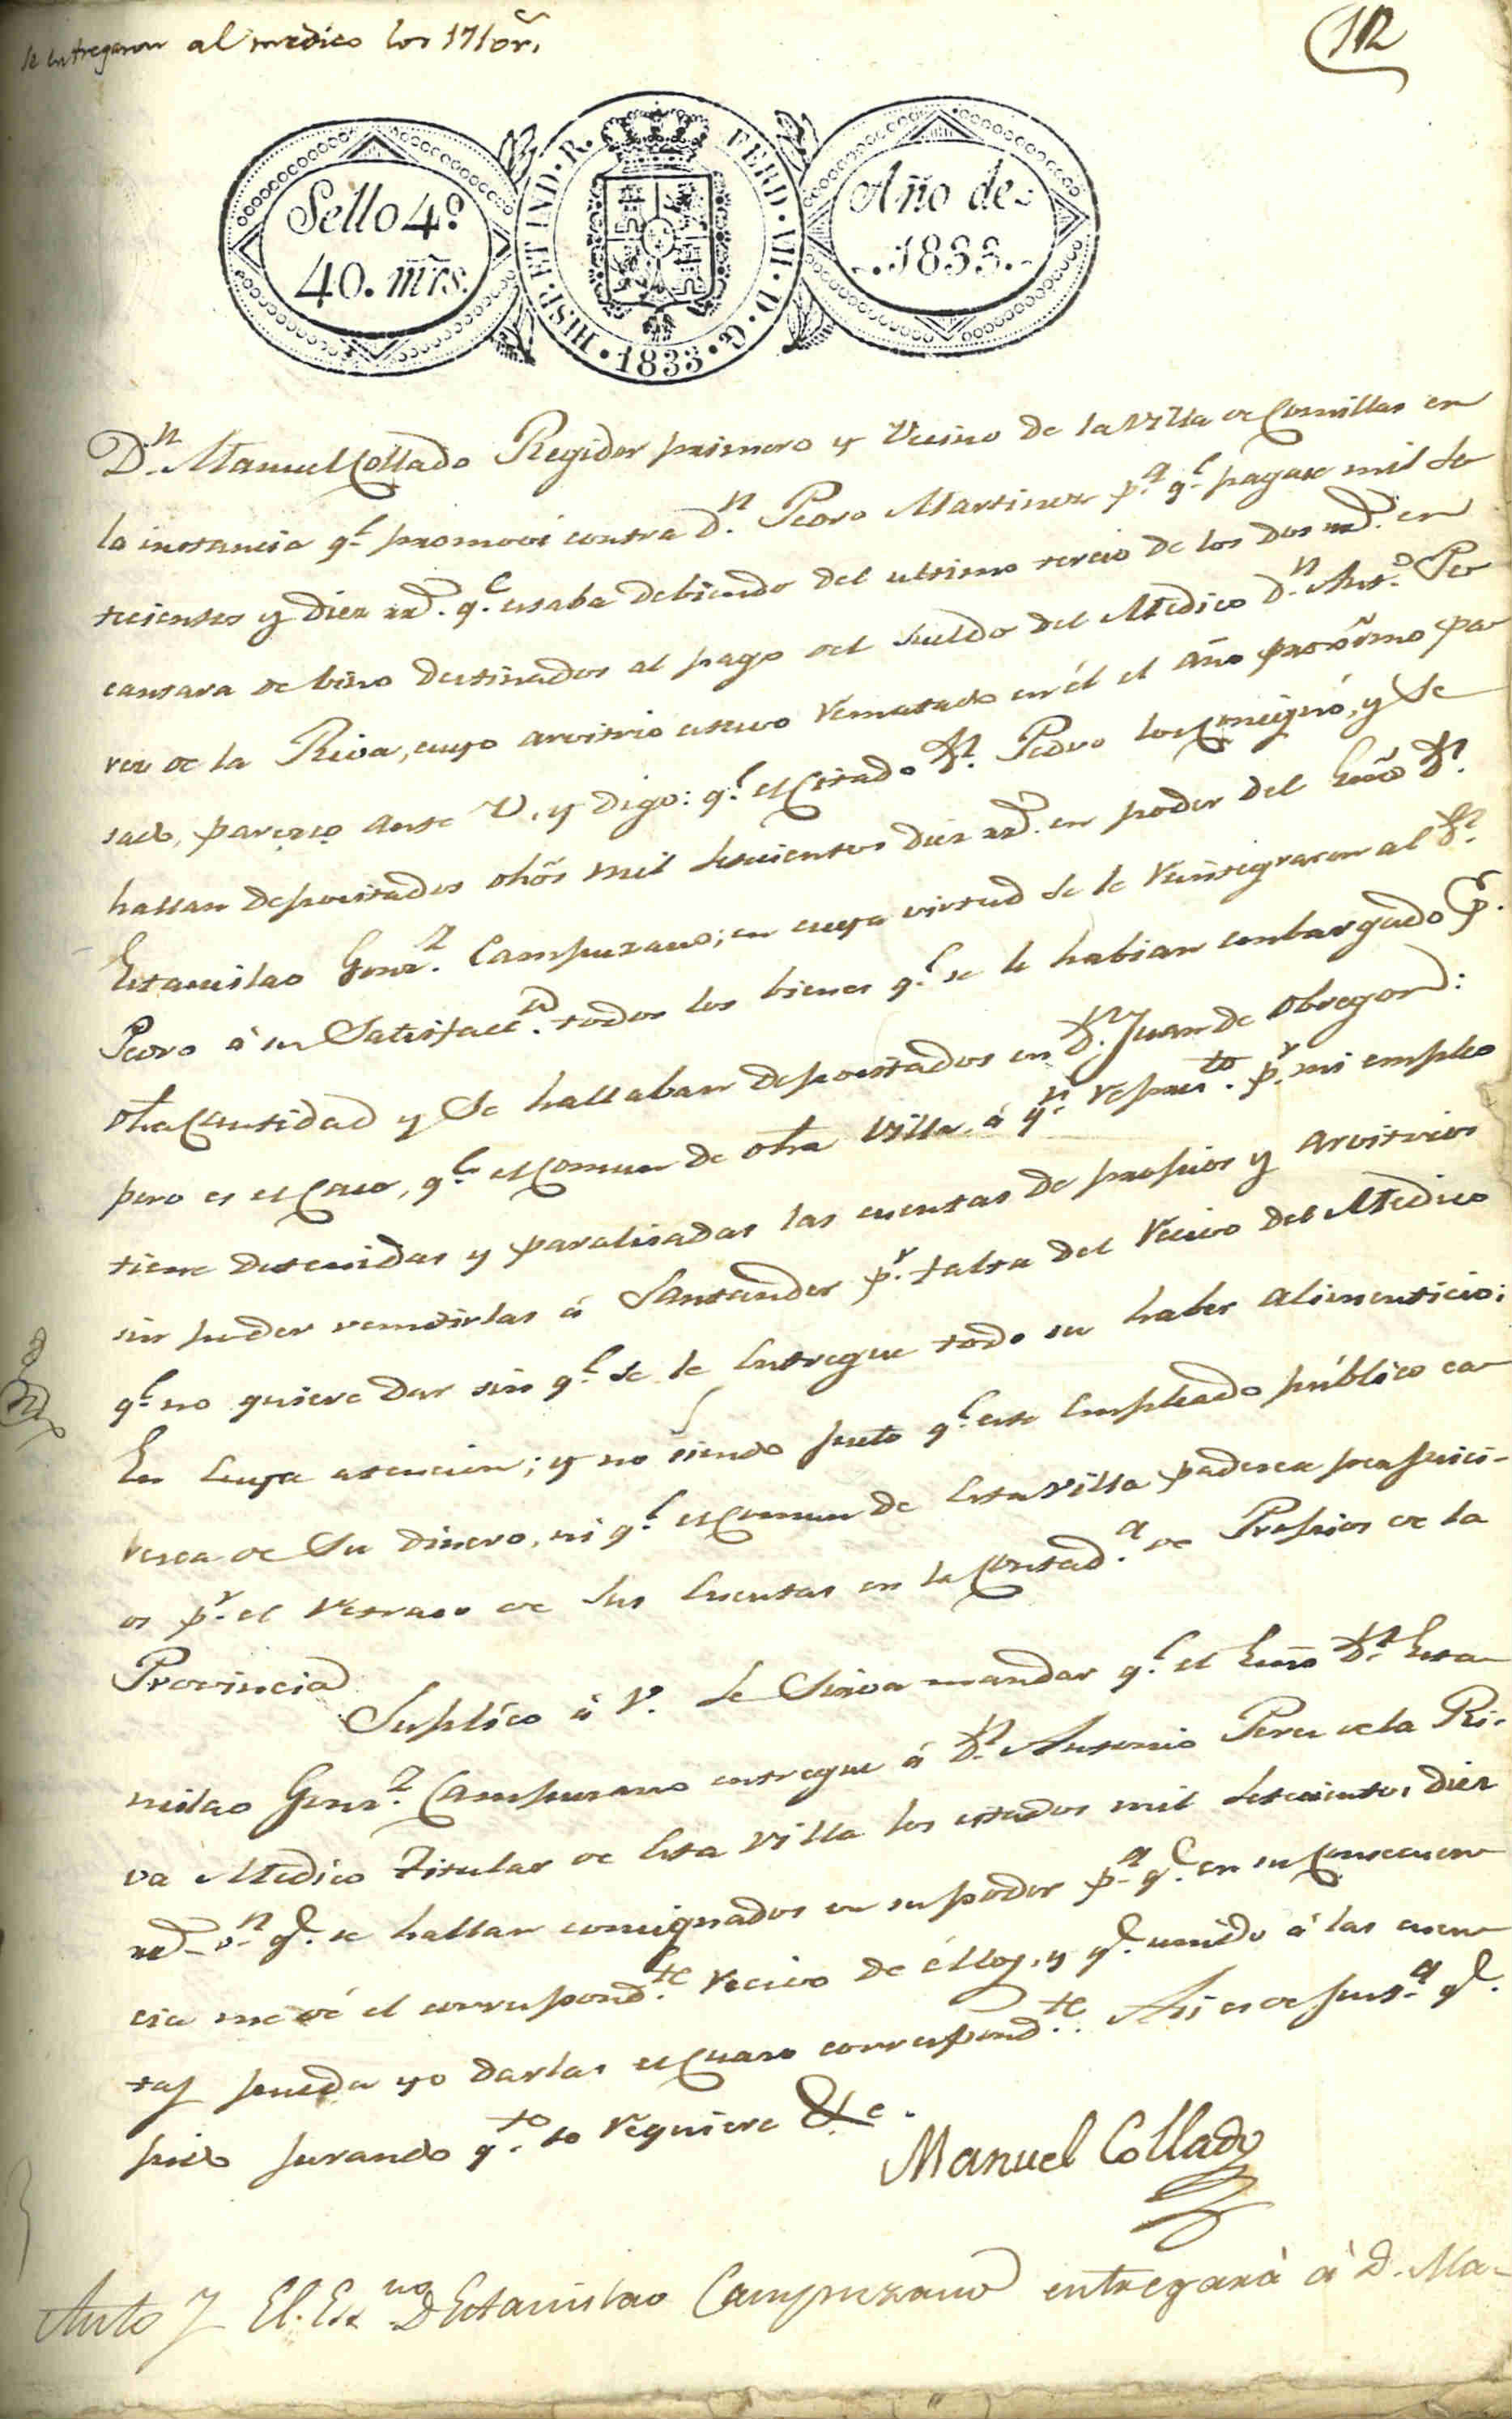 se entregaron al medico los 1710 rˢ.
12
Sello 4º
40. mrs.
HISP. ET IND. R. FERD. VII. D. G. 1833
Año de
1833.
Dⁿ. Manuel Collado Regidor primero y Vecino de la Villa de Comillas en
la instancia qᵉ. promoví contra dⁿ. Pedro Martinez pᵃ. qᵉ. pagase mil se
tecientos y diez rrˢ. qᵉ. estaba debiendo del ultimo tercio de los dos mrˢ. en
cantara de bino destinados al pago del sueldo del Medico Dⁿ. Antº. Pe
rez de la Riva, cuyo arvitrio estuvo rematado en él el año proximo pa
sado, parezco ante V. y digo: qᵉ. el Citado Dⁿ. Pedro los Consignó, y se
hallan depositados dhos mil setecientos diez rrˢ. en poder del Essno Dⁿ.
Estanislao Gonzᶻ. Campuzano; en cuya virtud se le reintegraron al Dⁿ.
Pedro á su Satisfaccⁿ. todos los bienes qᵉ. se le habian embargado pʳ.
dha Cantidad y se hallaban depositados en Dⁿ. Juan de Obregon:
pero es el Caso, qᵉ. el Comun de dha Villa, á qⁿ. represᵗᵒ. pʳ. mi empleo
tiene detenidas y paralisadas las cuentas de propios y arvitrios
sin poder remitirlas á Santander pʳ. falta del recivo del Medico
qᵉ. no quiere dar sin qᵉ. se le entregue todo su haber alimenticio;
En cuya atencion; y no siendo justo qᵉ. este empleado público ca
resca de su dinero, ni qᵉ. el Comun de esta Villa padesca perjuici-
os pʳ. el retraso de sus cuentas en la Contadᵃ. de Propios de la
Provincia
Suplíco á V. se sirva mandar qᵉ. el Essno Dⁿ. Esta
nislao Gonzᶻ. Campuzano entregue á Dⁿ. Antonio Perez de la Ri-
va Medico titular de esta Villa los citados mil setecientos diez
rrˢ. vⁿ. qᵉ. se hallan consignados en su poder pᵃ. qᵉ. en su Consecuen
cia me dé el correspondᵗᵉ. recivo de éllos, y qᵉ. unido á las cuen
tas pueda yo darlas el Curso correspondᵗᵉ. Asi es de justᵃ. qᵉ.
pido jurando qᵗᵒ. se requiere &c.
Manuel Collado
Auto
El Essno D Estanislao Campuzano entregará á D. Ma-